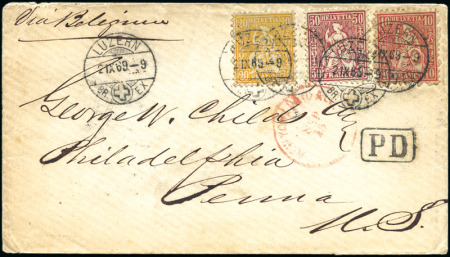 Via Belgium
LUZERN
2 IX 69–9
BR. EX.
HELVETIA
50
HELVETIA
10
George W. Childs Esq
Philadelphia
PD
Penna
U.S.